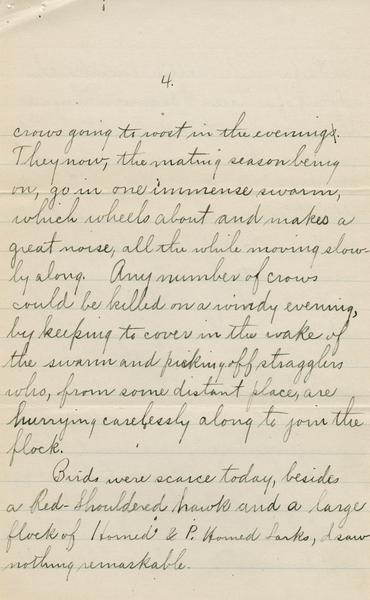 4.
crows going to roost in the evenings.
They now, the mating season being
on, go in one immense swarm,
which wheels about and makes a
great noise, all the while moving slow-
ly along. Any number of crows
could be killed on a windy evening,
by keeping to cover in the wake of
the swarm and picking off stragglers
who, from some distant place, are
hurrying carelessly along to join the
flock.
Birds were scarce today, besides
a Red-Shouldered hawk and a large
flock of Horned & P. Horned Larks, I saw
nothing remarkable.